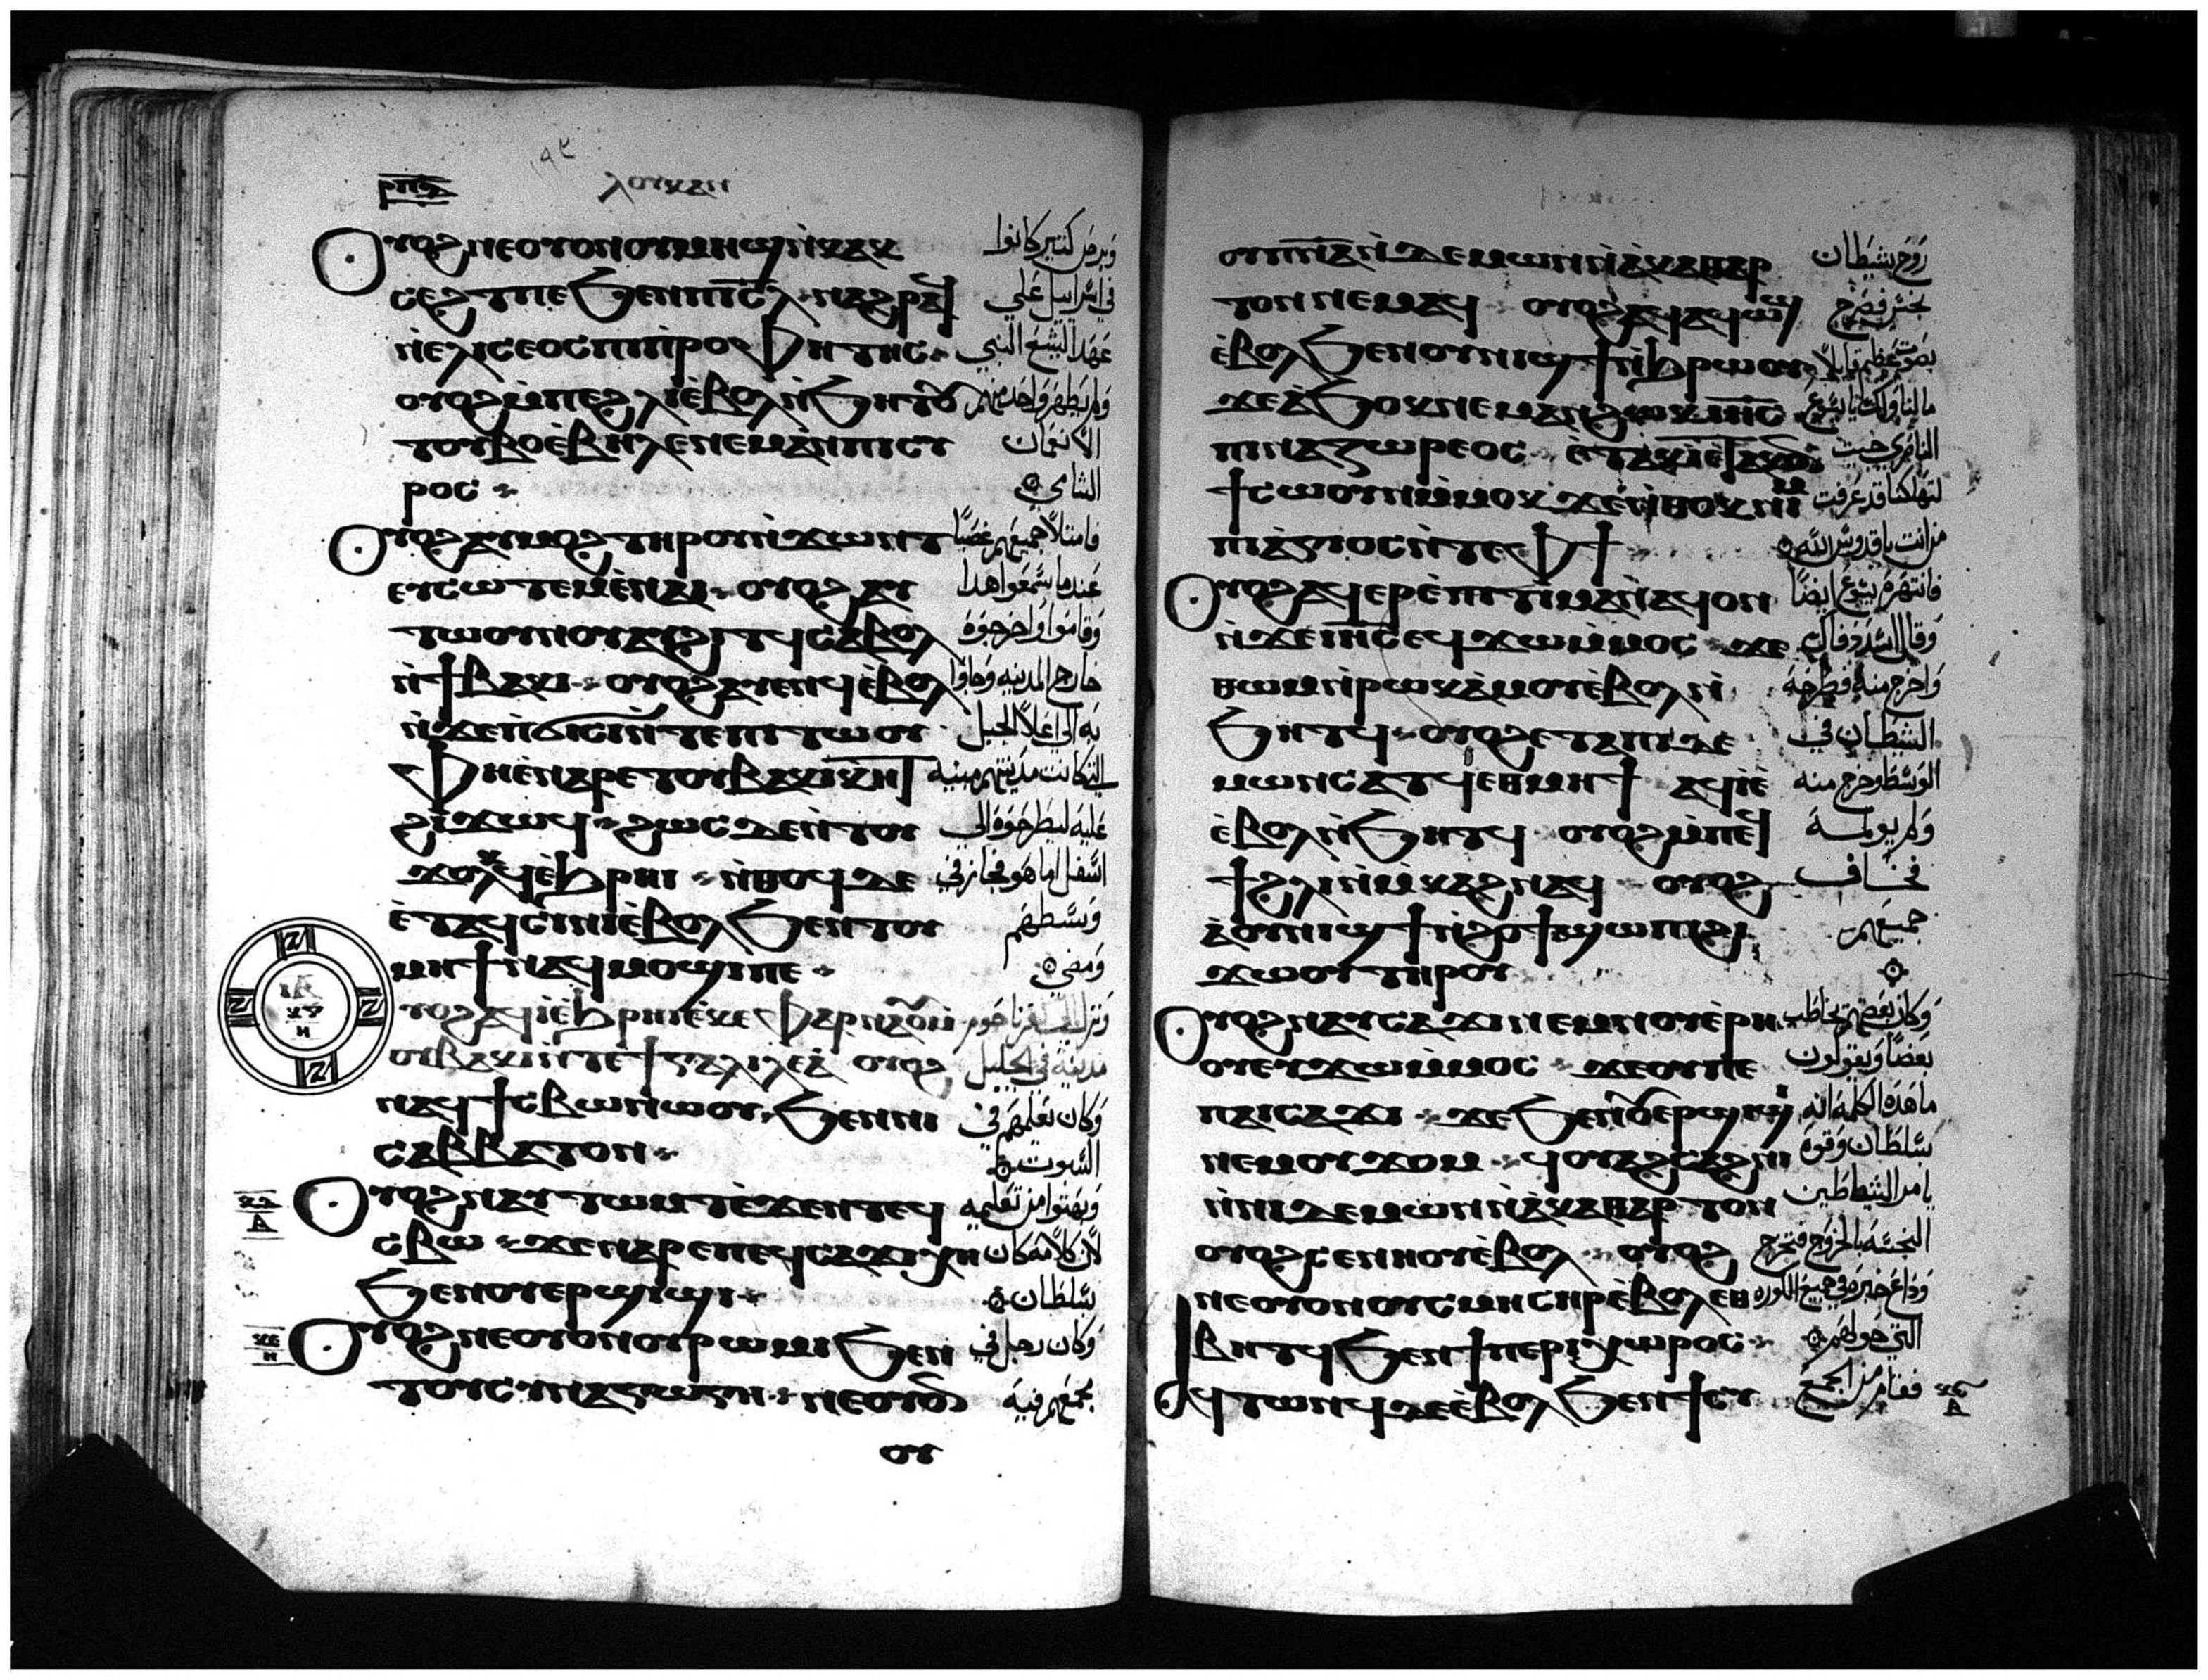 ⲣⲡⲍ
ⲗⲟⲩⲕⲁⲛ
ⲟⲩⲟϩ ⲛⲉⲟⲩⲟⲛⲟⲩⲙⲏϣ ⲛ̀ⲕⲁⲕ
ⲥⲉϩⲧⲡⲉ ϧⲉⲛⲡⲓⲥ̅ⲗ̅ ⲛⲁϩⲣⲁϥ
ⲛ̀ⲉⲗⲓⲥⲉⲟⲥ ⲡⲓⲡⲣⲟⲫⲏⲧⲏⲥ
ⲟⲩⲟϩ ⲙ̀ⲡⲉϩⲗⲓ ⲉ̀ⲃⲟⲗ ⲛ̀ϧⲏⲧⲟⲩ
ⲧⲟⲩⲃⲟ ⲉ̀ⲃⲏⲗ ⲉⲛⲉⲙⲁⲛ ⲡⲓⲥⲩ
ⲣⲟⲥ
ⲟⲩⲟϩ ⲁⲩⲙⲟϩ ⲧⲏⲣⲟⲩ ⲛ̀ϫⲱⲛⲧ
ⲉⲩⲥⲱⲧⲉⲙ ⲉ̀ⲛⲁⲓ ⲟⲩⲟϩ ⲁⲩ
ⲧⲱⲟⲩⲛⲟⲩ ⲁⲩϩⲓⲧϥ ⲥⲁⲃⲟⲗ
ⲛ̀ϯⲃⲁⲕⲓ ⲟⲩⲟϩ ⲁⲩⲉⲛϥ ⲉ̀ⲃⲟⲗ
ⲛ̀ϫⲉⲛ̀ϭⲓⲥⲓ ⲛ̀ⲧⲉⲡⲓⲧⲱⲟⲩ
ⲫⲏⲉ̀ⲛⲁⲣⲉ ⲧⲟⲩⲃⲁⲕⲓ ⲕⲏⲧ
ϩⲓϫⲱϥ ϩⲱⲥⲇⲉ ⲛ̀ⲧⲟⲩ
ϫⲟⲗⲕϥ ⲉ̀ϧⲣⲏⲓ ⲛ̀ⲑⲟϥ ⲇⲉ
ⲉ̀ⲧⲁϥⲥⲓⲛⲓ ⲉ̀ⲃⲟⲗ ϧⲉⲛⲧⲟⲩ
ⲙⲏϯ ⲛⲁϥⲙⲟϣⲓ ⲡⲉ
ⲟⲩⲟϩ ⲁϥⲓ̀ ⲉ̀ϧⲣⲏⲓ ⲉ̀ⲕⲉⲫⲁⲣⲛⲁⲟⲩⲙ
ⲟⲩⲃⲁⲕⲓ ⲛ̀ⲧⲉϯⲅⲁⲗⲓⲗⲉⲁ̀ ⲟⲩⲟϩ
ⲛⲁϥϯⲥⲃⲱ ⲛⲱⲟⲩ ϧⲉⲛⲛⲓ
ⲥⲁⲃⲃⲁⲧⲟⲛ
ⲟⲩⲟϩ ⲛⲁⲩⲧⲱⲙⲧ ⲉ̀ϫⲉⲛⲧⲉϥ
ⲥⲃⲱ ϫⲉⲛⲁⲣⲉ ⲡⲉϥⲥⲁϫⲓ ⲭⲏ
ϧⲉⲛⲟⲩⲉⲣϣⲓϣⲓ
ⲟⲩⲟϩ ⲛⲉⲟⲩⲟⲛ ⲟⲩⲣⲱⲙⲓ ϧⲉⲛ
ⲧⲟⲩⲥⲩⲛⲁⲅⲱⲅⲏ ⲛⲉⲟⲩⲟⲛ
ⲟⲩ
وبرص كثير كانوا
في اسراييل علي
عهد اليشع النبي
ولم يطهر واحد منهم
الا نعمان
الشامي
فامتلا جميعهم غضبًا
عندما سمعوا هدا
وقاموا واخرجوه
خارج المدينه وجاوا
به الي اعلا الجبل
التي كانت مدينتهم مبنيه
عليه ليطرحوه الي
اسفل اما هو فجاز في
وسطهم
ومضي
ونزل الي كفرناحوم
مدينة في الجليل
وكان يعلمهم في
السبوت
وبهتوا من تعليمه
لان كلامه كان
بسلطان
وكان رجل في
مجمعهم فيه
ⲟⲩⲡ̅ⲛ̅ⲁ̅ ⲛ̀ⲇⲉⲙⲱⲛ ⲛ̀ⲁ̀ⲕⲁⲑⲁⲣ
ⲧⲟⲛ ⲛⲉⲙⲁϥ ⲟⲩⲟϩ ⲁϥⲁϥⲱϣ
ⲉ̀ⲃⲟⲗ ϧⲉⲛⲟⲩⲛⲓϣϯ ⲛ̀ϧⲣⲱⲟⲩ
ϫⲉⲁ̀ϧⲟⲕ ⲛⲉⲙⲁⲛ ϩⲱⲕ ⲓⲏ̅ⲥ̅
ⲡⲓⲛⲁⲍⲱⲣⲉⲟⲥ ⲉ̀ⲧⲁⲕⲓ̀ ⲉ̀ⲧⲁⲕⲟⲛ
ϯⲥⲱⲟⲩⲛ ⲙ̀ⲙⲟⲕ ϫⲉⲛ̀ⲑⲟⲕ ⲛⲓⲙ
ⲡⲓⲁ̀ⲅⲓⲟⲥ ⲛ̀ⲧⲉ ⲫϯ
ⲟⲩⲟϩ ⲁϥⲉⲣⲉ̀ⲡⲓⲧⲓⲙⲁⲛ ⲛ̀ⲁϥ ⲟⲛ
ⲛ̀ϫⲉ ⲓⲏ̅ⲥ̅ ⲉϥϫⲱ ⲙ̀ⲙⲟⲥ ϫⲉ
ⲑⲱⲙ ⲛ̀ⲣⲱⲕ ⲁ̀ⲙⲟⲩ ⲉ̀ⲃⲟⲗ ⲛ̀
ϧⲏⲧϥ ⲟⲩⲟϩ ⲉⲧⲁⲡⲓⲇⲉ
ⲙⲱⲛ ⲥⲁⲧϥ ⲉⲑⲙⲏϯ ⲁϥⲓ̀ ⲉ̀
ⲉ̀ⲃⲟⲗ ⲛ̀ϧⲏⲧϥ ⲟⲩⲟϩ ⲙ̀ⲡⲉϥ
ϯϩⲗⲓ ⲛ̀ⲙ̀ⲕⲁϩ ⲛⲁϥ ⲟⲩⲟϩ
ⲁ̀ⲟⲩⲛⲓϣϯ ⲛ̀ϩⲟϯ ϣⲱⲡⲓ ϩⲓ
ϫⲱⲟⲩ ⲧⲏⲣⲟⲩ
ⲟⲩⲟϩ ⲛⲁⲩⲥⲁϫⲓ ⲛⲉⲙ ⲛⲟⲩⲉ̀ⲣⲏ
ⲟⲩ ⲉⲩϫⲱ ⲙ̀ⲙⲟⲥ ϫⲉⲟⲩⲡⲉ
ⲡⲁⲓⲥⲁϫⲓ ϫⲉ ϧⲉⲛⲟⲩⲉⲣϣⲓϣⲓ
ⲛⲉⲙ ⲟⲩϫⲟⲙ ϥⲟⲩⲁϩⲥⲁϩⲛⲓ
ⲛ̀ⲛⲓⲇⲉⲙⲱⲛ ⲛ̀ⲁ̀ⲕⲁⲑⲁⲣⲧⲟⲛ
ⲟⲩⲟϩ ⲥⲉⲛⲛⲟⲩ ⲉ̀ⲃⲟⲗ ⲟⲩⲟϩ
ⲛⲉⲟⲩⲟⲛ ⲟⲩⲥⲙⲏ ⲥⲏⲣ ⲉ̀ⲃⲟⲗ ⲉⲑ
ⲃⲏⲧϥ ϧⲉⲛϯⲡⲉⲣⲓⲭⲱⲣⲟⲥ
ⲁϥⲧⲱⲛϥ ⲇⲉ ⲉ̀ⲃⲟⲗ ϧⲉⲛϯⲥⲩ
روح شيطان
نجس فصرخ
بصوت عظيم قايلا
ما لنا ولك يا يسوع
الناصري جيت
لتهلكنا قد عرفت
من انت يا قدوس الله
فانتهره يسوع ايضًا
وقال اسدد فاك
واخرج منه فطرحه
الشيطان في
الوسط وخرج منه
ولم يولمه
فخاف
جميعهم
وكان بعضهم يخاطب
بعضًا ويقولون
ما هذه الكلمه انه
بسلطان وقوه
يامر الشياطين
النجسه بالخروج فتخرج
وذاع خبره في جميع الكوره
التي حولهم
فقام من المجمع